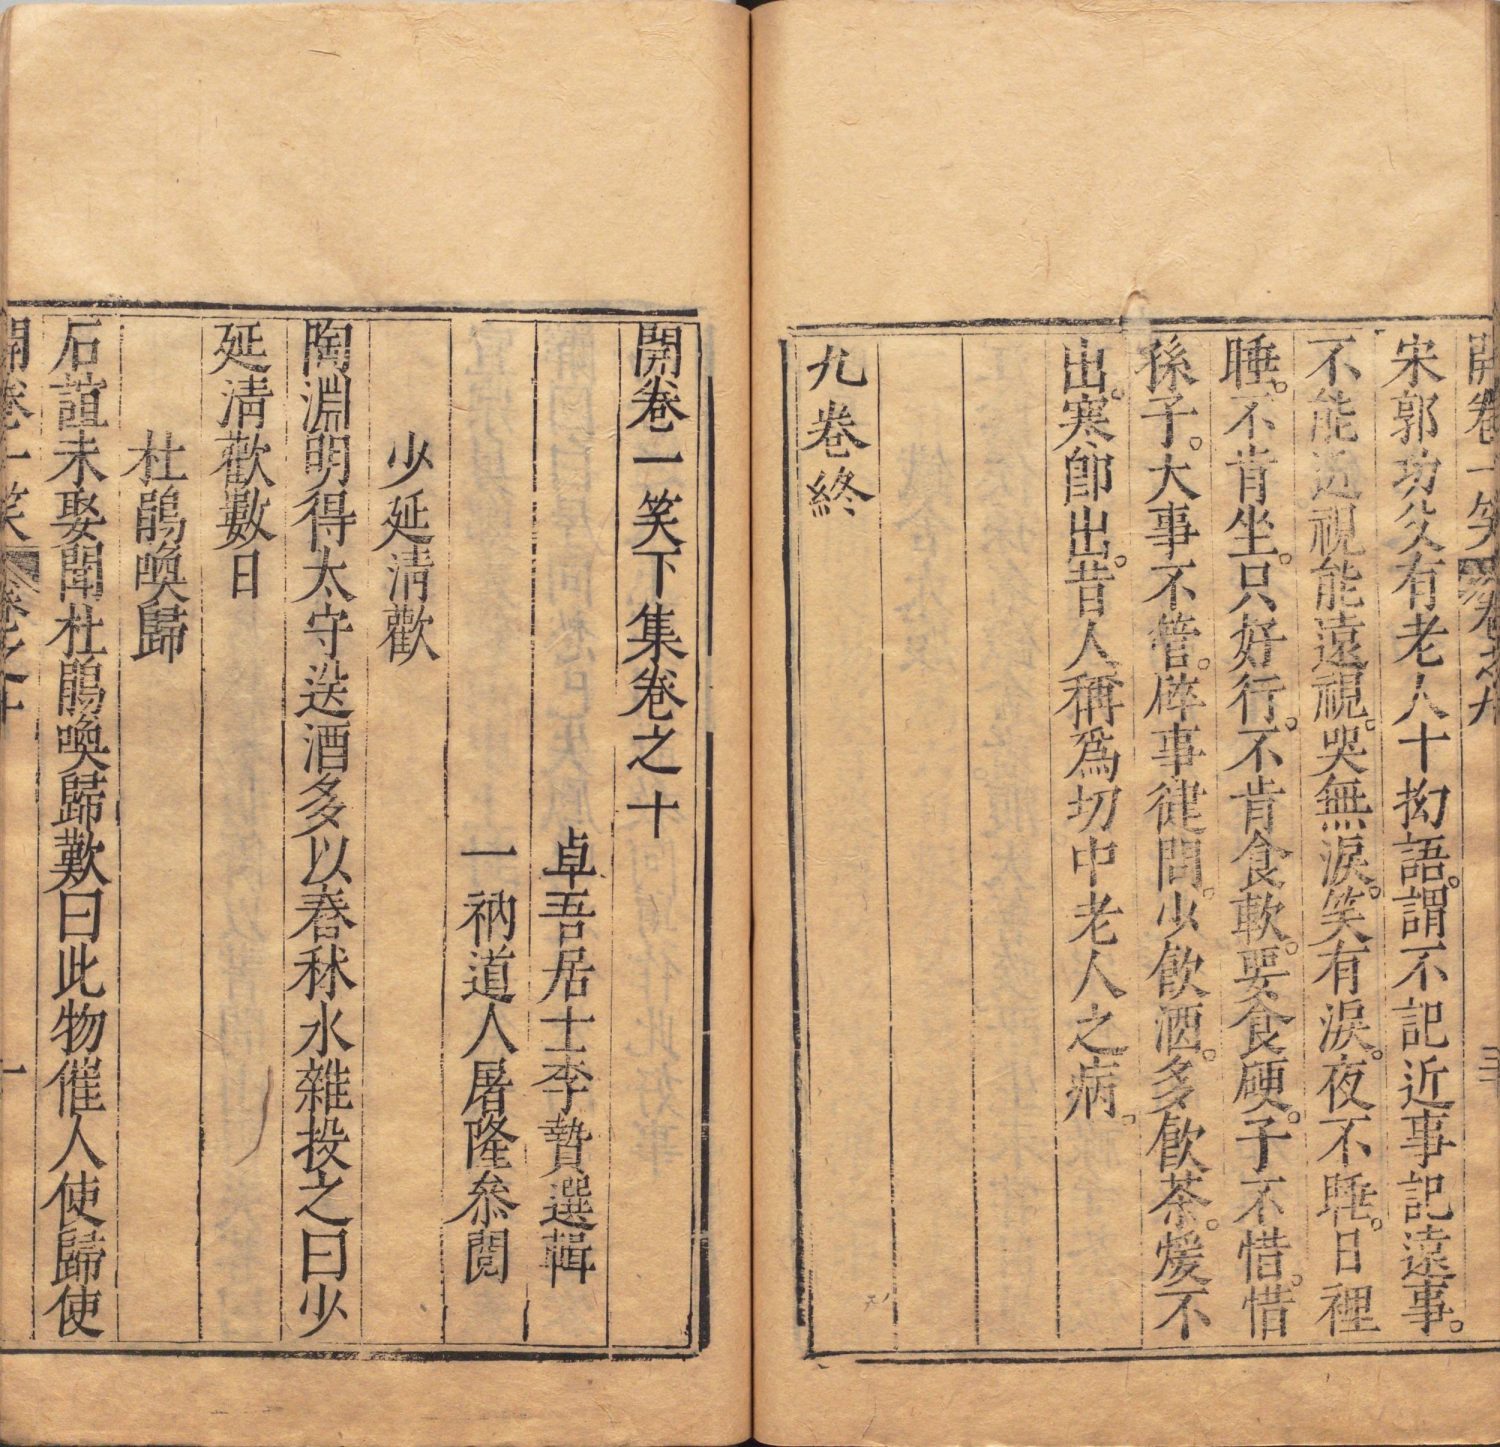 開卷一笑 卷之九 三十
宋郭功父有老人十拗語。謂不記近事記遠事。
不能近視能遠視。哭無淚。笑有淚。夜不睡。日裡
睡。不肯坐。只好行。不肯食軟。要食硬。子不惜。惜
孫子。大事不管。碎事徤問。少飲酒。多飲茶。煖不
出。寒卽出。昔人稱爲切中老人之病。
九卷終
開卷一笑下集卷之十
卓吾居士李贄選輯
一衲道人屠隆叅閱
少延清歡
陶淵明得太守送酒多以舂秫水雜投之曰少
延清歡數日
杜鵑喚歸
石誼未娶聞杜鵑喚歸歎曰此物催人使歸使
開卷一笑 卷之十 一